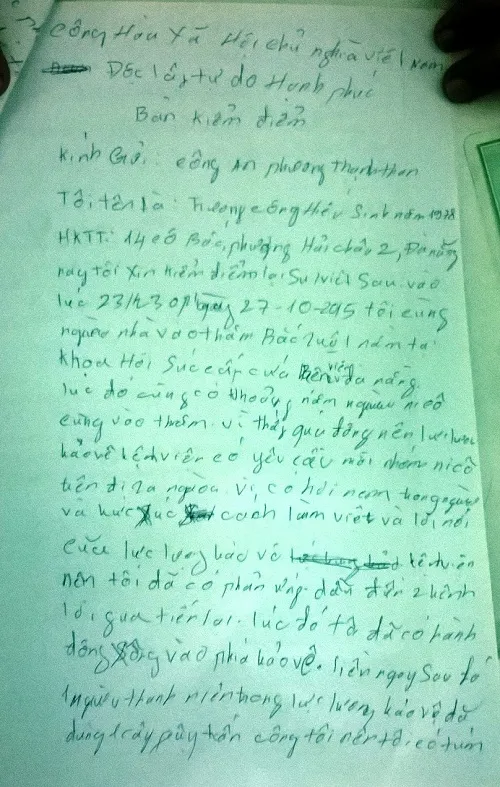 Cộng Hòa Xã Hội chủ nghĩa việt Nam
Độc lập tự do Hạnh phúc
Bản kiểm điểm
Kính Gửi: công An phường Thạch than
Tôi tên là: Trương công Hiếu Sinh năm 1978
HKTT: 14 cô Bắc, phường Hải châu 2, Đà nẵng
nay tôi xin kiểm điểm lại Sự việc Sau. vào
lúc 23h30 ngày 27-10-2015 tôi cùng
người nhà vào thăm Bác ruột nằm tại
khoa Hồi Sức cấp cứu Bệnh viện đà nẵng
lúc đó cũng có khoảng năm người ni cô
cùng vào thăm. vì thấy quá đông nên lực lượng
bảo vệ bệnh viện có yêu cầu mời nhóm ni cô
trên đi ra ngoài. vì có hơi men trong người
và bức xúc cách làm việc và lời nói
của lực lượng bảo vệ bệnh viện
nên tôi đã có phản ứng. dẫn đến 2 bên
lời qua tiếng lại. lúc đó tôi đã có hành
động xông vào phía bảo vệ. liền ngay Sau đó
1 người thanh niên trong lực lượng bảo vệ đã
dùng cây tấn công tôi nên tôi có túm